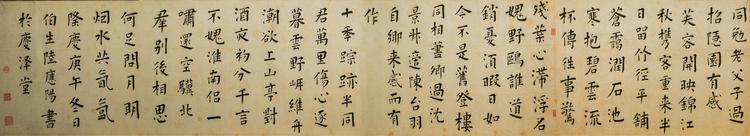 同勉老父子過
招隱園有感
芙容開映錦江
秋携客重来半
日留竹徑平鋪
蒼靄潤石池
寒抱碧雲流
杯傳往事驚
殘葉心滯浮名
媿野鷗誰道
銷憂須暇日如
今不是舊登樓
同相書鄉過沈
景州邊陳台羽
自鄉来感而有
作
十季踪跡半同
君萬里傷心逐
暮雲野嶼維舟
潮欲上山亭對
酒夜初分千言
不媿淮南侣一
嘯還空驥北
羣別後相思
何足問月明
烟水共氤氳
隆慶庚午冬日
伯生陸應陽書
於慶澤堂